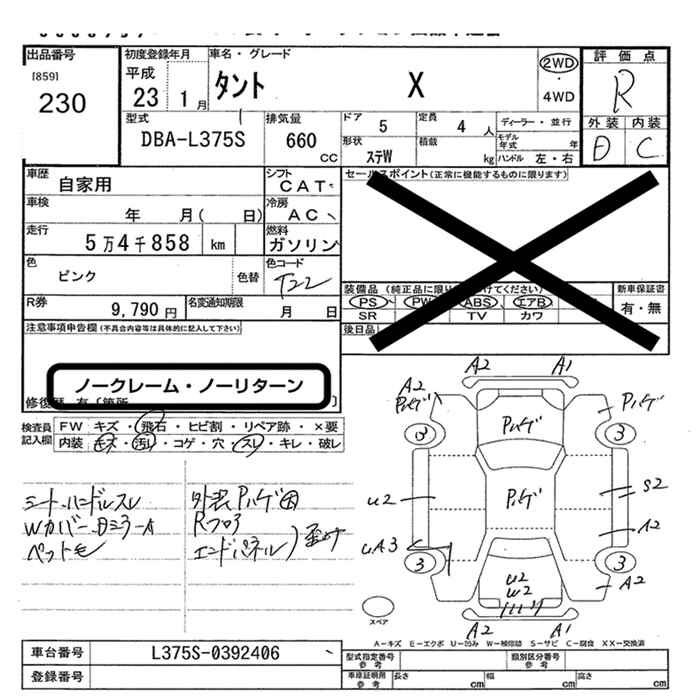 出品番号
[859]
230
初度登録年月
平成
23 1 月
車名・グレード
タント X
2WD
・
4WD
評価点
R
外装 内装
D C
型式
DBA-L375S
排気量
660 CC
ドア 5
定員 4 人
形状 ステW
積載 kg
ディーラー・並行
モデル年式 年
ハンドル 左・右
車歴
自家用
シフト
CAT
車検
年 月( 日)
冷房
AC
走行
5万4千858 km
燃料
ガソリン
色
ピンク
色替
色コード
T22
R券
9,790 円
名変通知期限
月 日
セールスポイント(正常に機能するものに限ります)
装備品
PS PW ABS エアB
SR TV カワ
後日品
新車保証書
有・無
注意事項申告欄(不具合内容等は具体的に記入して下さい)
ノークレーム・ノーリターン
検査員記入欄
FW キズ・飛石・ヒビ割・リペア跡・×要
内装 キズ・汚れ・コゲ・穴・スレ・キレ・破レ
シート.ハンドルスレ
Wカバー.
ペット毛
外装Pハゲ
Rフロア
エンドパネル
A2 A1
A2
Pハゲ
Pハゲ
Pハゲ
3 3
Pハゲ
U2
S2
A2
UA3
3 3
A2
U2
W2
A2 A1
スペア
A－キズ E－エクボ U－凹み W－補修跡 S－サビ C－腐食 XX－交換済
車台番号
L375S-0392406
登録番号
型式指定番号
参考
類別区分番号
参考
車庫証明用
参考
長さ cm 幅 cm 高さ cm